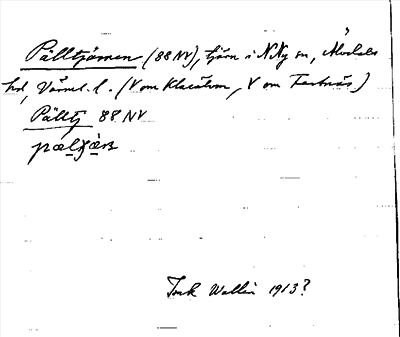 Pälltjärnen (88 NV), tjärn i N Ny sn, Älvdals
hd, Värml. l. (V om Klarälven, V om Fastnäs)
Pälltj 88 NV
Ink Wallin 1913?